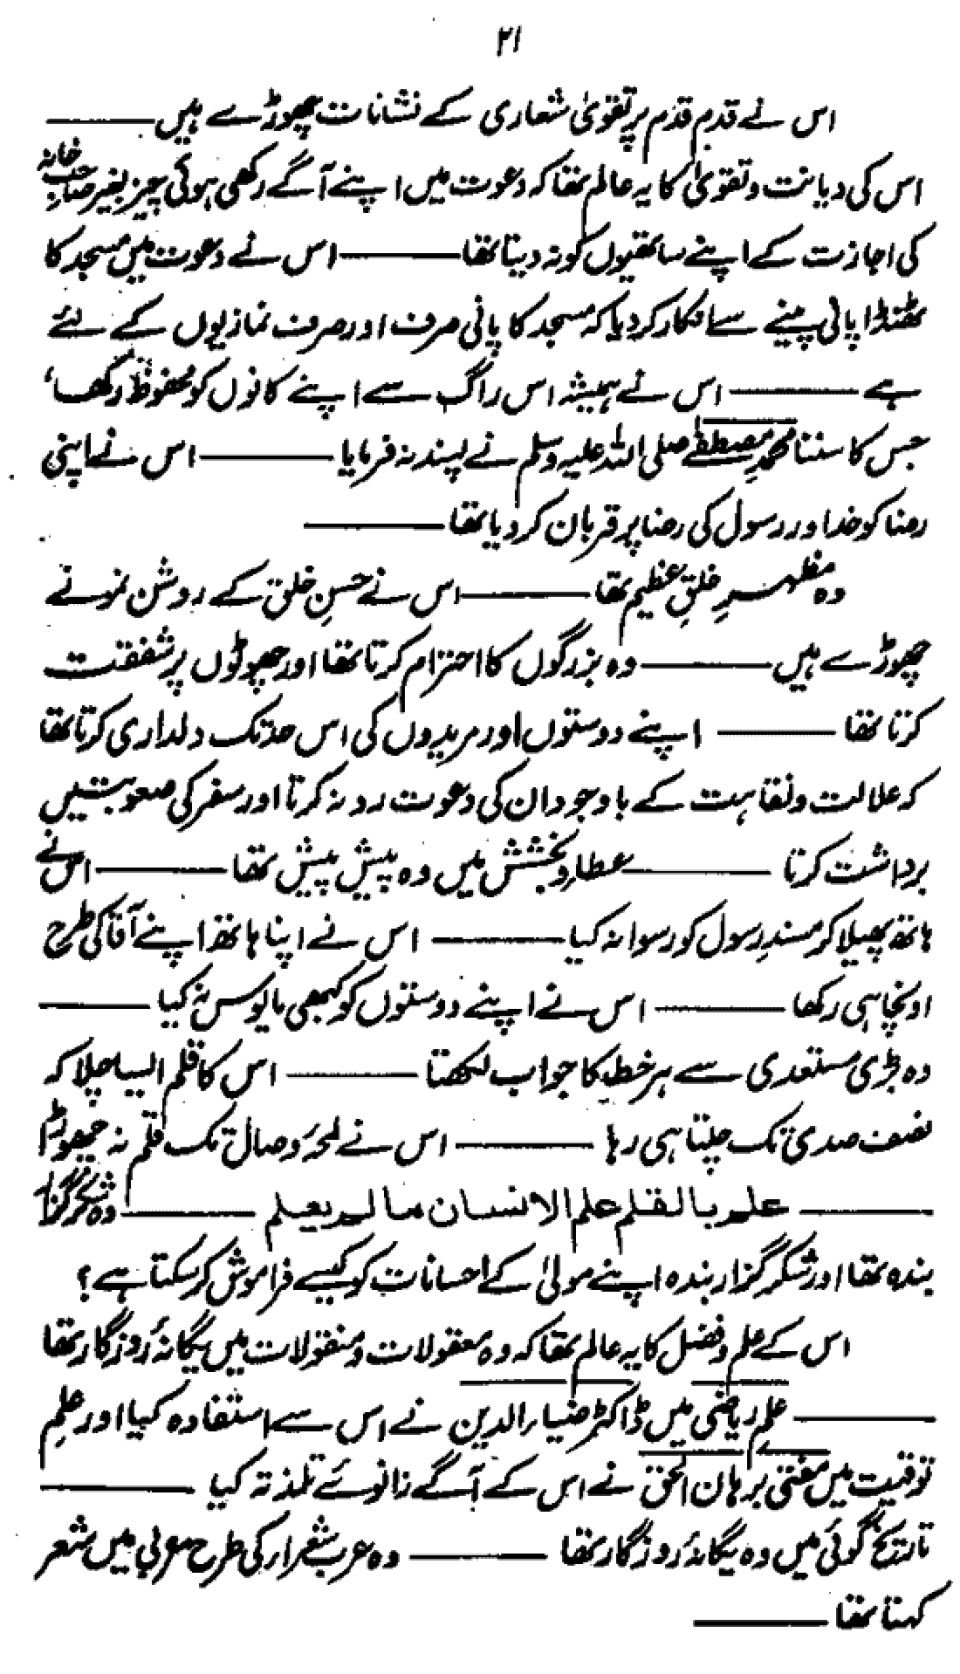 ۲۱
اس نے قدم قدم پر تقویٰ شعاری کے نشانات چھوڑے ہیں ———
اس کی دیانت و تقویٰ کا یہ عالم تھا کہ دعوت میں اپنے آگے رکھی ہوئی چیز بغیر صاحب خانہ
کی اجازت کے اپنے ساتھیوں کو نہ دیتا تھا ——— اس نے دعوت میں مسجد کا
ٹھنڈا پانی پینے سے انکار کر دیا کہ مسجد کا پانی صرف اور صرف نمازیوں کے لئے
ہے ——— اس نے ہمیشہ اس راگ سے اپنے کانوں کو محفوظ رکھا،
جس کا سننا محمدِ مصطفےٰ صلی اللہ علیہ وسلم نے پسند نہ فرمایا ——— اس نے اپنی
رضا کو خدا و رسول کی رضا پر قربان کر دیا تھا ———
وہ مظہرِ خلقِ عظیم تھا ——— اس نے حسنِ خلق کے روشن نمونے
چھوڑے ہیں ——— وہ بزرگوں کا احترام کرتا تھا اور چھوٹوں پر شفقت
کرتا تھا ——— اپنے دوستوں اور مریدوں کی اس حد تک دلداری کرتا تھا
کہ علالت و نقاہت کے باوجود ان کی دعوت رد نہ کرتا اور سفر کی صعوبتیں
برداشت کرتا ——— عطا و بخشش میں وہ پیش پیش تھا ——— اس نے
ہاتھ پھیلا کر مسندِ رسول کو رسوا نہ کیا ——— اس نے اپنا ہاتھ اپنے آقا کی طرح
اونچا ہی رکھا ——— اس نے اپنے دوستوں کو کبھی مایوس نہ کیا ———
وہ بڑی مستعدی سے ہر خط کا جواب لکھتا ——— اس کا قلم ایسا چلا کہ
نصف صدی تک چلتا ہی رہا ——— اس نے لمحۂ وصال تک قلم نہ چھوڑا
——— علم بالقلم علم الانسان مالم یعلم ——— وہ شکر گزار
بندہ تھا اور شکر گزار بندہ اپنے مولیٰ کے احسانات کو کیسے فراموش کر سکتا ہے؟
اس کے علم و فضل کا یہ عالم تھا کہ وہ معقولات و منقولات میں یگانۂ روزگار تھا
——— علمِ ریاضی میں ڈاکٹر ضیاء الدین نے اس سے استفادہ کیا اور علمِ
توقیت میں مفتی برہان الحق نے اس کے آگے زانوئے تلمذ تہ کیا ———
تاریخ گوئی میں وہ یگانۂ روزگار تھا ——— وہ عرب شعراء کی طرح عربی میں شعر
کہتا تھا ———